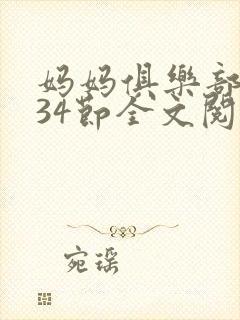 妈妈俱樂部
34節全文閱
宛瑶